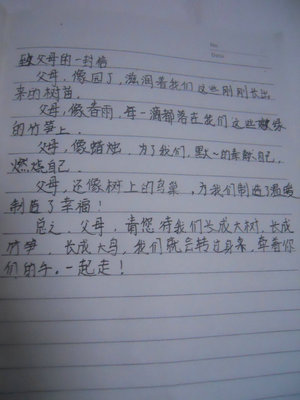 No.
Date
致父母的一封信
父母,像园丁,滋润着我们这些刚刚长出
来的树苗。
父母,像春雨,每一滴都落在我们这些嫩绿
的竹笋上。
父母,像蜡烛,为了我们,默~的奉献自己,
燃烧自己。
父母,还像树上的鸟巢,为我们制造了温暖
制造了幸福!
总之,父母,请您待我们长成大树,长成
竹笋,长成大鸟,我们就会转过身来,牵着你
们的手。一起走!